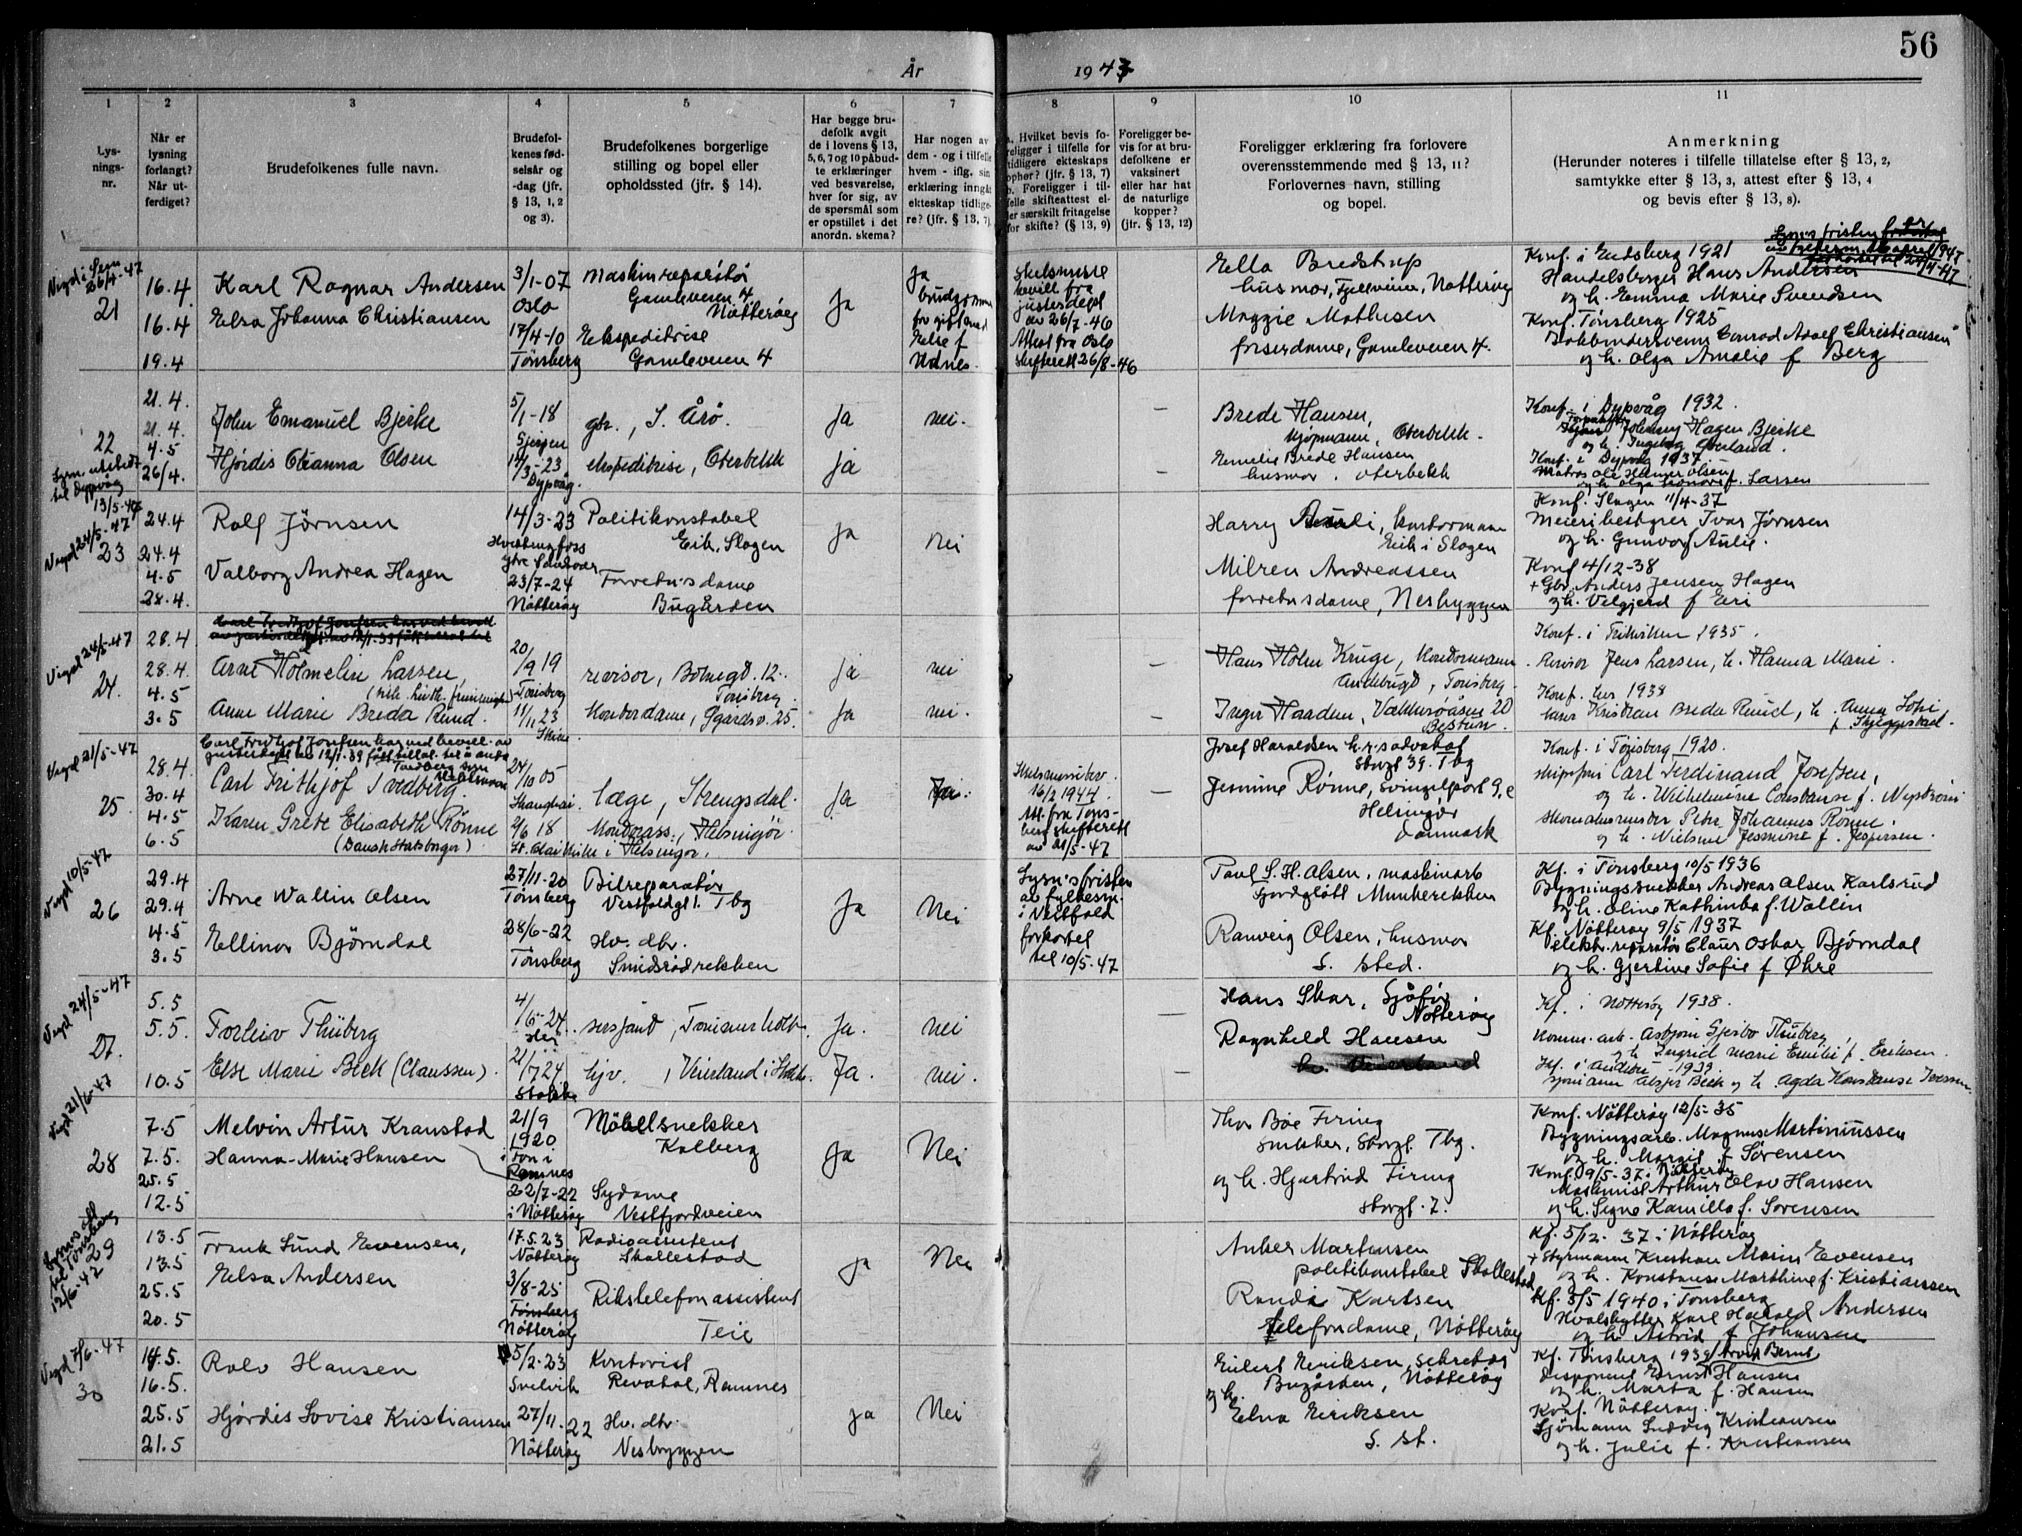 56
År 1947
1 2 3 4 5 6 7 8 9 10 11
Lys-
nings-
nr.
Når er
lysning
forlangt?
Når ut-
ferdiget?
Brudefolkenes fulle navn.
Brudefol-
kenes fød-
selsår og
-dag (jfr.
§ 13, 1, 2
og 3).
Brudefolkenes borgerlige
stilling og bopel eller
opholdssted (jfr. § 14).
Har begge bru-
defolk avgit
de i lovens § 13,
5, 6, 7 og 10 påbud-
te erklæringer
ved besvarelse,
hver for sig, av
de spørsmål som
er opstillet i det
anordn. skema?
Har nogen av
dem - og i tilfelle
hvem - iflg. sin
erklæring inngåt
ekteskap tidlige-
re? (jfr. § 13, 7).
a. Hvilket bevis fo-
religger i tilfelle for
tidligere ekteskaps
ophør? (jfr. § 13, 7)
b. Foreligger i til-
felle skifteattest el-
ler særskilt fritagelse
for skifte? (§ 13, 9)
Foreligger be-
vis for at bru-
defolkene er
vaksinert
eller har hat
de naturlige
kopper?
(jfr. § 13, 12)
Foreligger erklæring fra forlovere
overensstemmende med § 13, 11?
Forlovernes navn, stilling
og bopel.
Anmerkning
(Herunder noteres i tilfelle tillatelse efter § 13, 2,
samtykke efter § 13, 3, attest efter § 13, 4
og bevis efter § 13, 8).
Vigd i Sem
26/4-47
21
16.4
16.4
19.4
Karl Ragnar Andersen
Elsa Johanna Christiansen
3/1-07
Oslo
17/4-10
Tønsberg
Maskinreparatør
Gamleveien 4
Nøtterøy
Ekspeditrise
Gamleveien 4
Ja
Ja
brudgommen
for gift med
Else f
Udnes.
Skilsmisse
bevill fra
justisdept
av 26/7-46
Attest fra Oslo
skifterett 26/8-46
Ella Bredstrup
husmor, Fjellveien, Nøtterøy
Maggie Mathisen
frisørdame, Gamleveien 4.
Konf. i Eidsberg 1921
Handelsborger Hans Andersen
og h. Emma Marie Svendsen
Konf. Tønsberg 1925
Bokbindersvenn Conrad Adolf Christiansen
og h. Olga Amalie f Berg
22
21.4.
21.4.
4.5
26/4.
John Emanuel Bjerke
Hjördis Oleanna Olsen
5/1-18
14/3-23
Dypvåg.
gbr., S. Årø.
ekspeditrise, Oterbekk
Ja
ja
nei.
–
Brede Hansen,
kjøpmann, Oterbekk.
Emelie Brede Hansen
husmor. Oterbekk
Konf. i Dypvåg 1932.
Johnny Hagen Bjerke
og h. Ingeborg Overland.
Konf. i Dypvåg 1937
Matros Ole Hansen Olsen
og h. Olga f. Larsen
Lysn utstedt
til Dypvåg
13/5-47
Vigd 24/5-47
23
24.4
24.4
4.5
28.4.
Rolf Jørnsen
Valborg Andrea Hagen
14/3-23
23/7-24
Nøtterøy
Politikonstabel
Eik, Slagen
Forretn.s dame
Bugården
Ja
Nei
Harry Auli, kontormann
Eik i Slagen
Milren Andreassen
forretn.s dame, Nesbyggen
Konf. Slagen 11/4-37
Meieribestyrer Ivar Jørnsen
og h. Gunvor f Aulie.
Konf 4/12-38
+ Gbr. Anders Jensen Hagen
og h. Velgjerd f Eri
Vigd 24/5-47
24.
28.4
28.4.
4.5
3.5
Arne Holmelin Larsen
Anne Marie Breda Ruud.
20/9 19
Tønsberg
11/11 23
revisor, 12.
Tønsberg
Kontordame, 25.
Ja
Ja
nei
nei.
–
Hans Holm Kruge, Kontormann
Andebugt, Tønsberg.
Inger Haaden, Vækkerøåsen 20
Bestun.
Konf. i Fredriksten 1935.
Revisor Jens Larsen, h. Hanna Marie.
Konf. her 1938
Kristian Breda Ruud, h. Anna Sofie
f. Skjeggestad.
Vigd 21/5-47
25
28.4
30.4
4.5
6.5
Carl Fridtjof Josefsen har ved bevill. av
Carl Frithjof Tvedberg.
Karen Grete Elisabeth Rønne
(Dansk Statsborger)
24/10 05
Shanghai
2/6 18
læge, Strengsdal.
Kontorass., Helsingør.
i Helsingør.
Ja
Ja.
Skilsmissebev.
16/2 1944.
Att. fra Tøns-
berg skifterett
av 21/5-47
–
Josef Haraldsen h.r.s advokat
Storgt 39. Tbg
Jemine Rønne, Svingelport 9,
Helsingør
Danmark
Konf. i Tønsberg 1920.
Carl Ferdinand Josefsen,
og h. Wilhelmine Constanse f. Nystrøm
Skomakermester Peter Johannes Rønne.
og h. Nielsine Jesmine f. Jespersen.
Vigd 10/5-47
26
29.4
29.4
4.5
3.5
Arne Wallin Olsen
Ellinor Bjørndal
27/11-20
Tønsberg
28/6-22
Tønsberg
Bilreparatør
Vestfoldgt 1. Tbg
Hv. dtr.
Smidsrødrekken
Ja
Nei
Lysn.s fristen
av fylkesm.
i Vestfold
forkortet
til 10/5-47
Paul S. H. Olsen, maskinarb
Fjordgløtt Munkerekken
Ranveig Olsen, husmor
s. sted.
Kf. i Tønsberg 10/5 1936
Bygningssnekker Andreas Olsen Karlsrud
og h. Oline Kathinka f. Wallin
Kf. Nøtterøy 9/5 1937
elektr. reparatør Claus Oskar Bjørndal
og h. Gjertine Sofie f Øhre
Vigd 24/5-47
27.
5.5
5.5.
10.5
Torleiv Thüberg
Else Marie Beck (Claussen).
4/6-24
21/7 24
Stokke
hjv., Veierland i Stokke.
Ja.
Ja.
nei
nei.
–
–
Hans Skar, Sjåfør
Nøtterøy
Ragnhild Hansen
Kf. i Nøtterøy 1938.
Komm. arb. Asbjørn Thüberg
og h. Ingrid Marie Emilie f. Eriksen.
Kf. i Andebu 1939
Beck og h. Agda Konstanse Iversen
Vigd 21/6-47
28
7.5
7.5.
25.5
12.5
Melvin Artur Kranstad
Hanna-Marie Hansen
21/9
1920
i Fon i
Ramnes
22/7-22
i Nøtterøy
Møbelsnekker
Kolberg
Sydame
Vestfjordveien
Ja
Nei
Thor Bøe Firing
snekker, Storgt. Tbg.
og h. Hjartrid Firing
Storgt. 7.
Konf. Nøtterøy 12/5-35
Bygningsarb. Magnus Martiniussen
og h. Margit f Sørensen
Konf. 9/5-37 i Nøtterøy
Maskinist Arthur Olav Hansen
og h. Signe Kamilla f. Sørensen
Lysn.s att
til Tønsberg
12/6-47
29
13.5
13.5
25.5
20.5
Frank Lund Evensen,
Elsa Andersen
17.5.23
Nøtterøy
3/8-25
Tønsberg
Nøtterøy
Radioassistent
Skallestad
Rikstelefonassistent
Teie
ja
Nei
Anker Martinsen
politikonstabel Skallestad
Randi Karlsen
telefondame, Nøtterøy
Kf. 5/12-37 i Nøtterøy
+ Styrmann Kristian Marin Evensen
og h. Konstanse Marthine f. Kristianssen
Kf. 5/5 1940 i Tønsberg
Hvalskytter Karl Harald Andersen
og h. Astrid f Johansen
Vigd 7/6-47
30
14.5.
16.5.
25.5
21.5
Rolv Hansen
Hjørdis Lovise Kristiansen
5/2-23
Svelvik
27/11-22
Nøtterøy
Kontorist
Revetal, Ramnes
Hv. dtr.
Nesbryggen
ja
Nei
Eilert Eriksen, sekretær
Bugården, Nøtterøy
og h.
Elna Eriksen
s. st.
Kf. Tønsberg 1939
Disponent Ernst Hansen
og h. Marta f. Hansen
Konf. Nøtterøy.
Sjømann Ludvig Kristiansen
og h. Julie f. Kristiansen